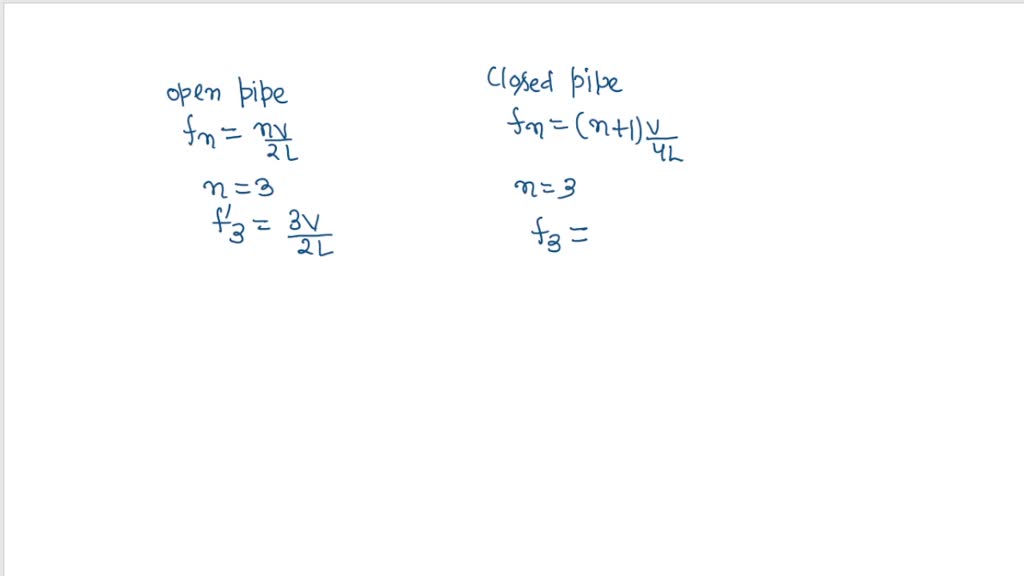 open pipe
fn = nV/2L
n = 3
f'3 = 3V/2L
Closed pipe
fn = (n+1)V/4L
n = 3
f3 =